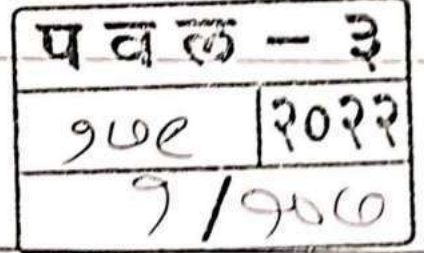 पवल - ३
१७९ २०२२
१/१०७